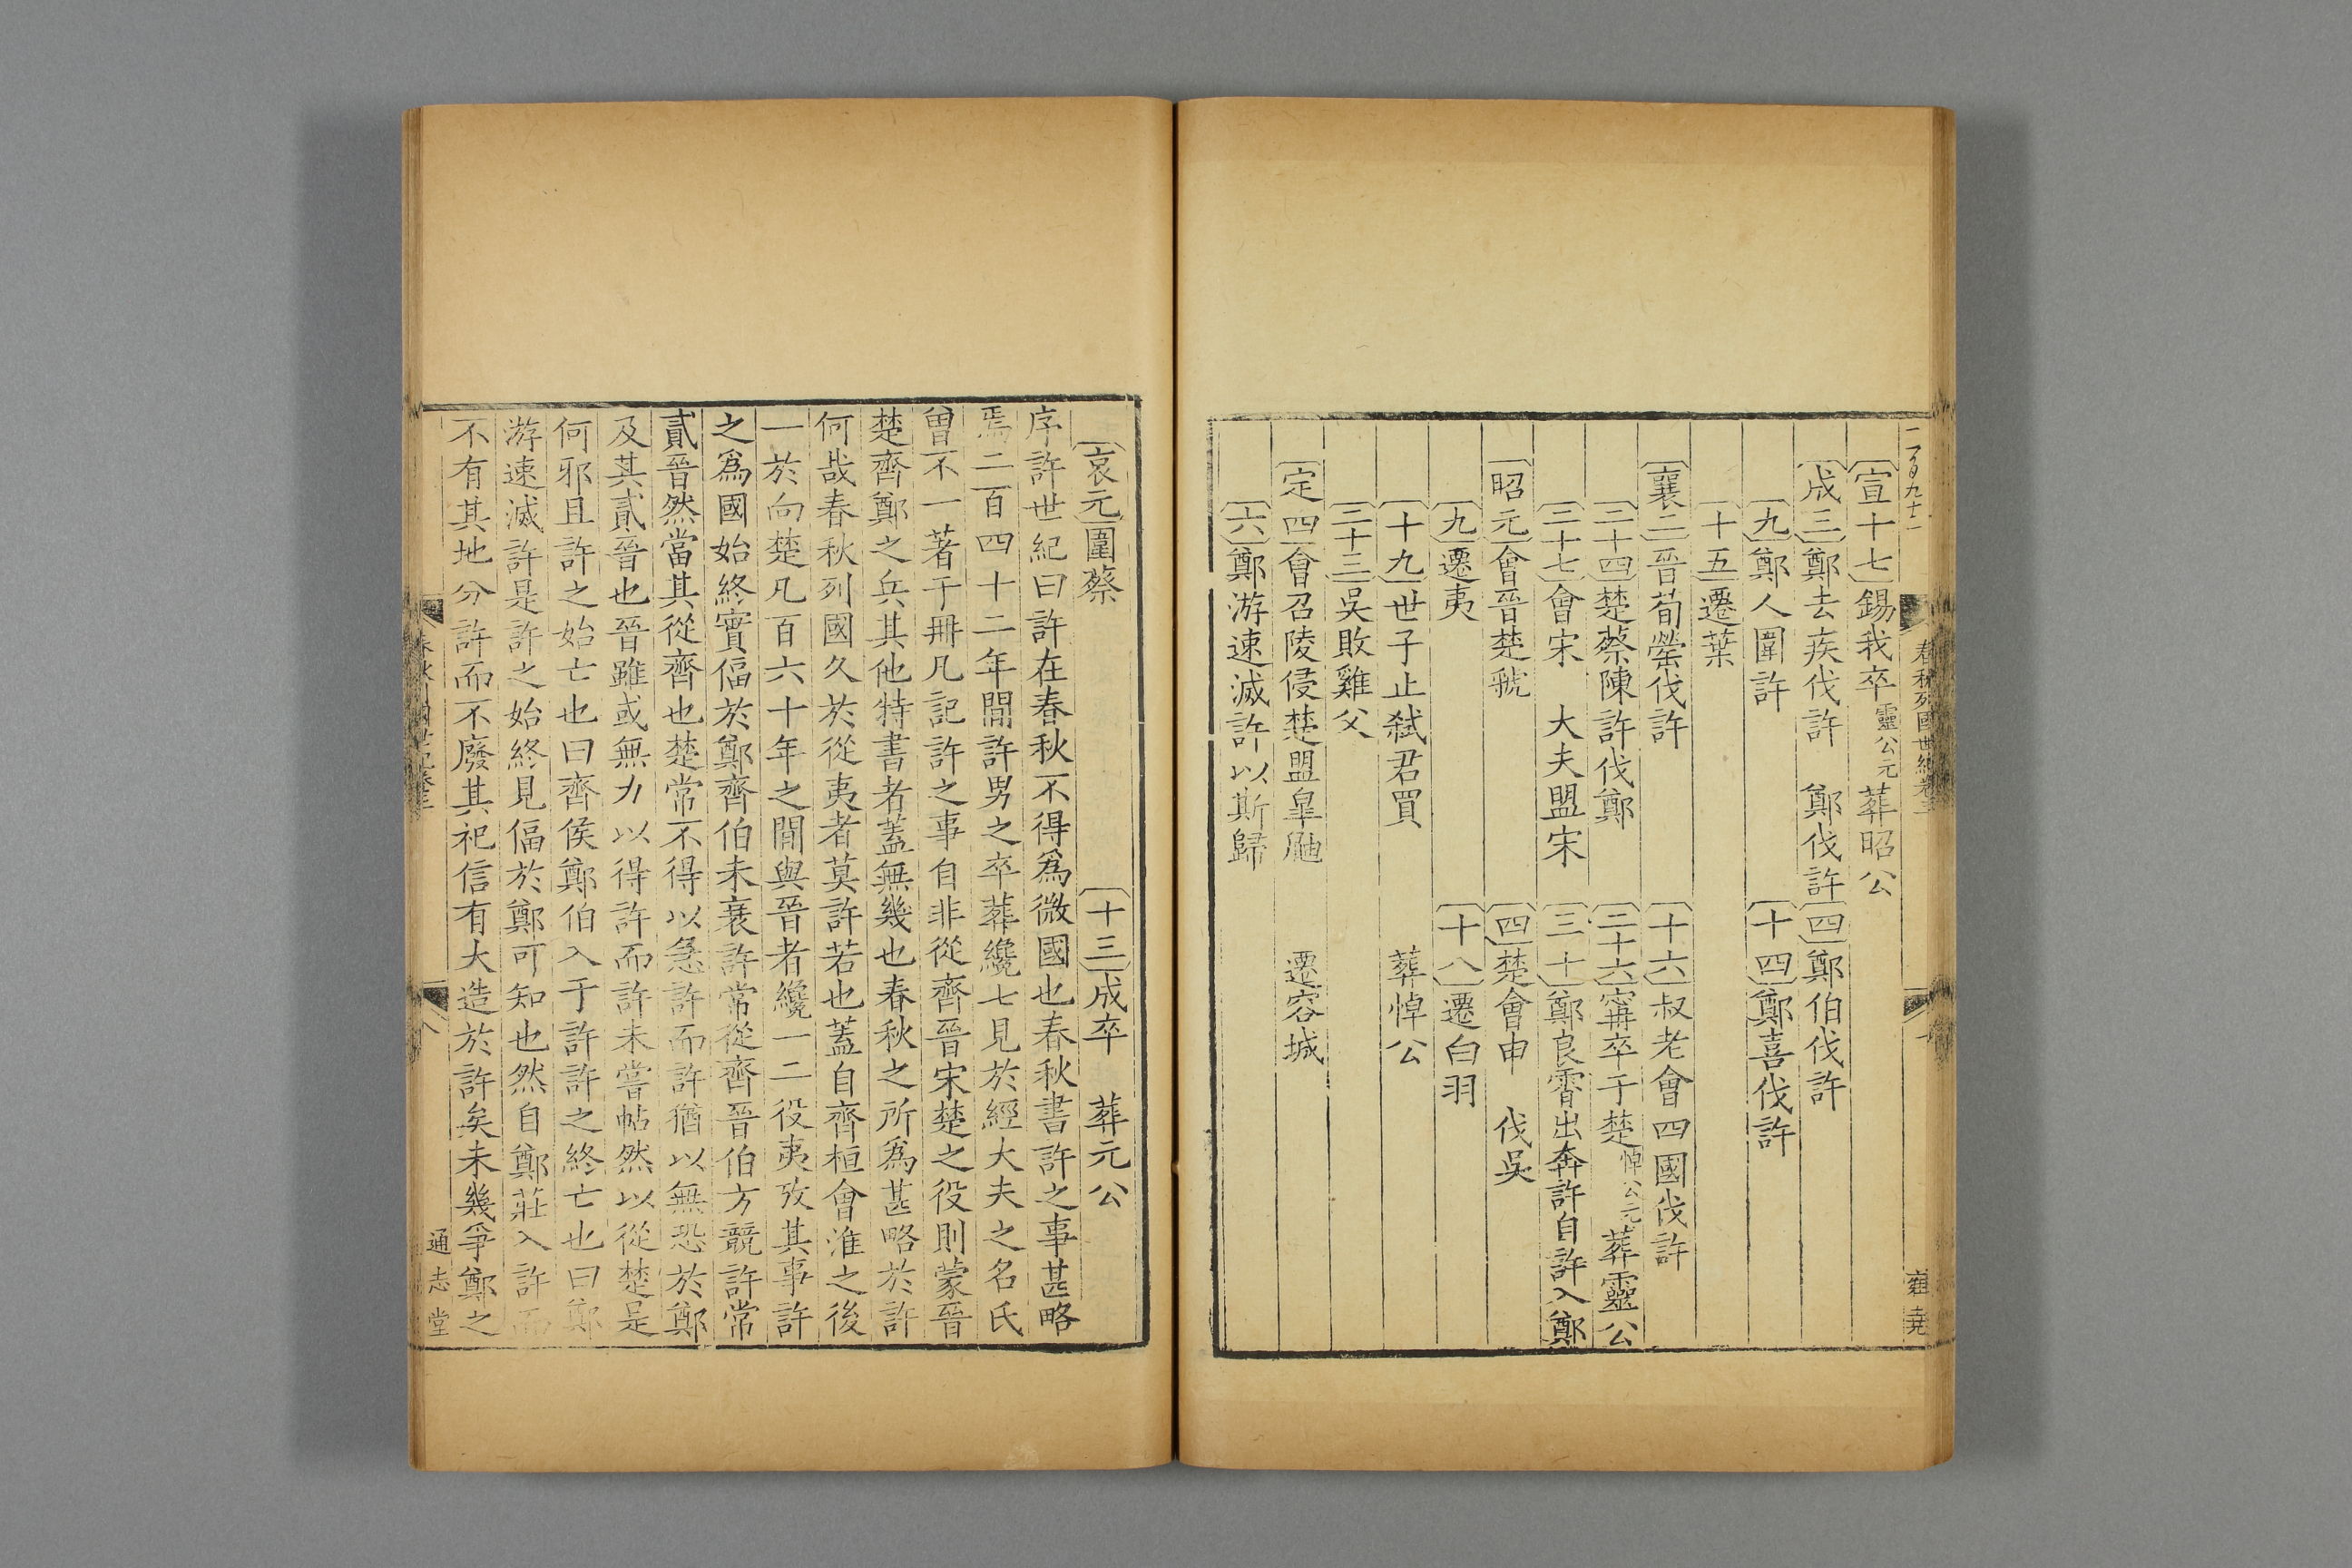 二百九十二
春秋列國世紀卷三
雍堯
宣十七錫我卒靈公元葬昭公
成三鄭去疾伐許 鄭伐許四鄭伯伐許
九鄭人圍許 十四鄭喜伐許
十五遷葉
襄三晉荀罃伐許 十六叔老會四國伐許
二十四楚蔡陳許伐鄭 二十六甯卒于楚悼公元葬靈公
二十七會宋 大夫盟宋 三十鄭良霄出奔許自許入鄭
昭元會晉楚虢 四楚會申 伐吳
九遷夷 十八遷白羽
十九世子止弒君買 葬悼公
二十三吳敗雞父
定四會召陵侵楚盟皋鼬 遷容城
六鄭游速滅許以斯歸
哀元圍蔡 十三成卒 葬元公
序許世紀曰許在春秋不得為微國也春秋書許之事甚略
焉二百四十二年間許男之卒葬纔七見於經大夫之名氏
曾不一著于冊凡記許之事自非從齊晉宋楚之役則蒙晉
楚齊鄭之兵其他特書者蓋無幾也春秋之所為甚略於許
何哉春秋列國久於從夷者莫許若也蓋自齊桓會淮之後
一於向楚凡百六十年之間與晉者纔一二役夷攷其事許
之為國始終實偪於鄭齊伯未衰許常從齊晉伯方競許常
貳晉然當其從齊也楚常不得以急許而許猶以無恐於鄭
及其貳晉也晉雖或無力以得許而許未嘗帖然以從楚是
何邪且許之始亡也曰齊侯鄭伯入于許許之終亡也曰鄭
游速滅許是許之始終見偪於鄭可知也然自鄭莊入許而
不有其地分許而不廢其祀信有大造於許矣未幾爭鄭之
通志堂